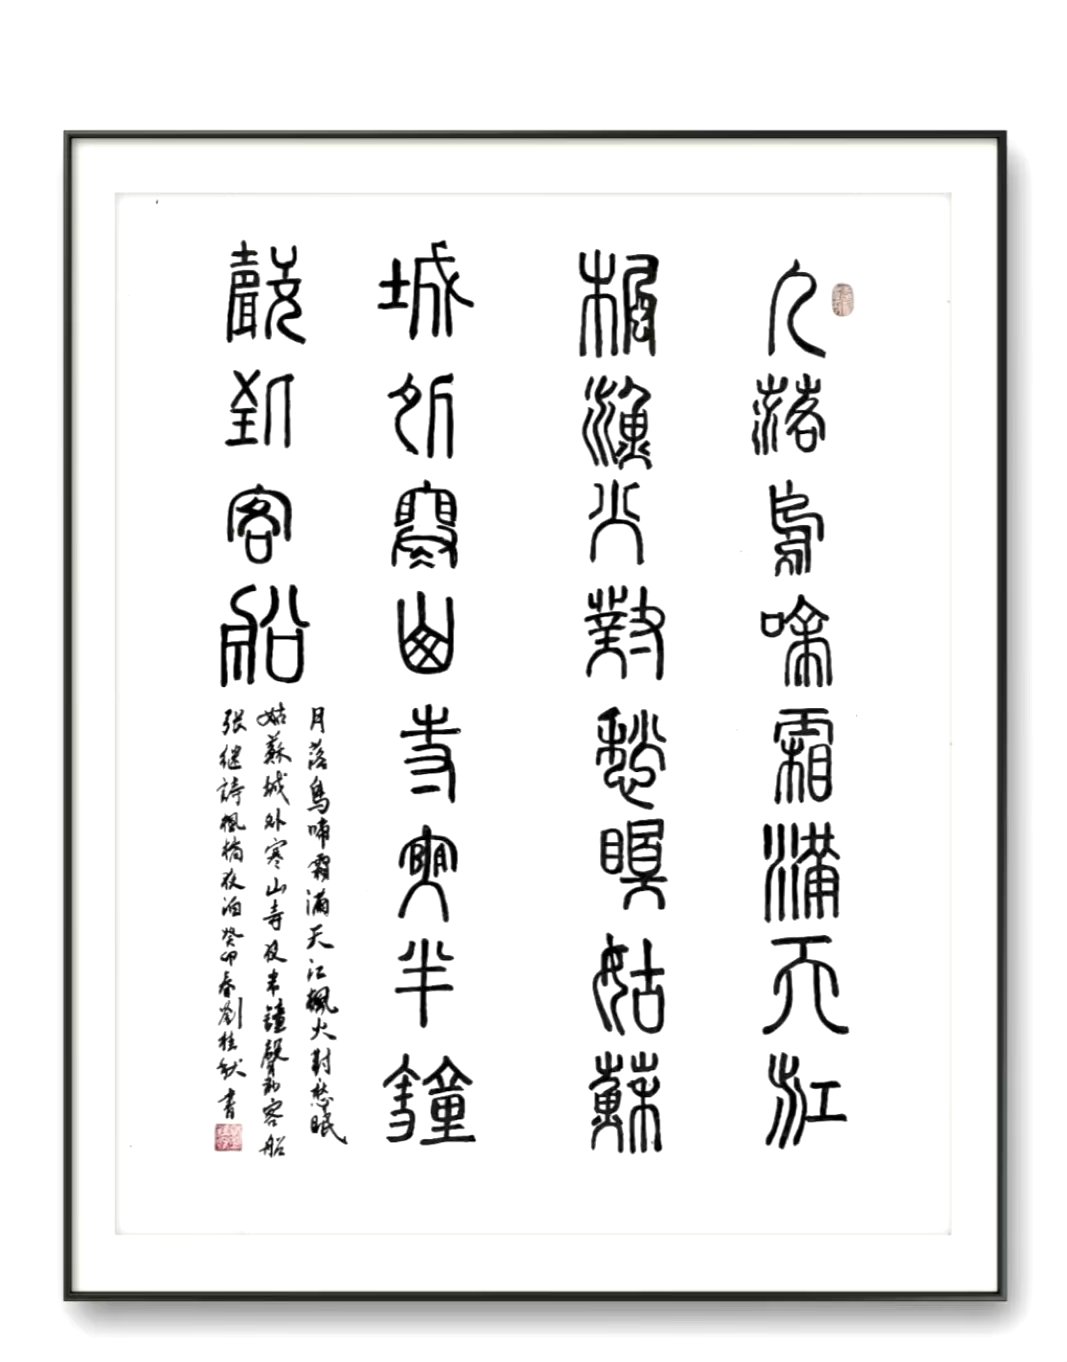 月落烏啼霜滿天江
楓漁火對愁眠姑蘇
城外寒山寺夜半鐘
聲到客船
月落烏啼霜滿天江楓火對愁眠
姑蘇城外寒山寺夜半鐘聲到客船
张继詩楓橋夜泊癸卯春劉桂書